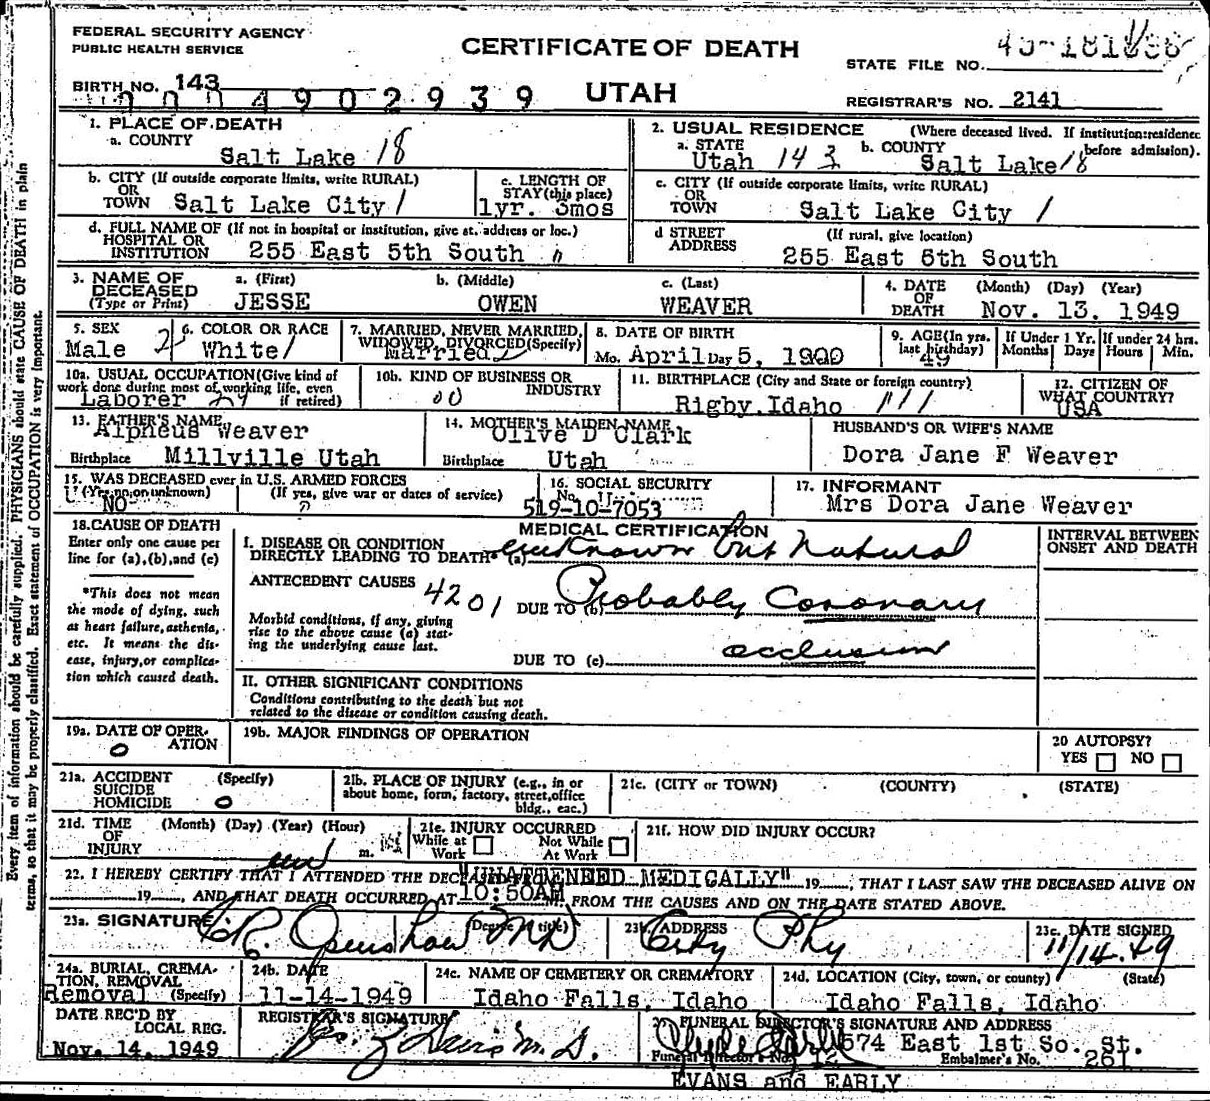 FEDERAL SECURITY AGENCY
PUBLIC HEALTH SERVICE
CERTIFICATE OF DEATH
UTAH
STATE FILE NO.
BIRTH NO. 143
4902939
REGISTRAR'S NO. 2141
1. PLACE OF DEATH
a. COUNTY
Salt Lake 18
2. USUAL RESIDENCE (Where deceased lived. If institution: residence before admission).
a. STATE Utah 143 b. COUNTY Salt Lake 18
b. CITY (If outside corporate limits, write RURAL)
OR
TOWN Salt Lake City 1
c. LENGTH OF
STAY (this place)
1yr. 3mos
c. CITY (If outside corporate limits, write RURAL)
OR
TOWN Salt Lake City 1
d. FULL NAME OF (If not in hospital or institution, give st. address or loc.)
HOSPITAL OR
INSTITUTION 255 East 5th South
d STREET
ADDRESS
(If rural, give location)
255 East 5th South
3. NAME OF
DECEASED
(Type or Print)
a. (First) b. (Middle) c. (Last)
JESSE OWEN WEAVER
4. DATE
OF
DEATH
(Month) (Day) (Year)
Nov. 13. 1949
5. SEX
Male
6. COLOR OR RACE
White 1
7. MARRIED, NEVER MARRIED,
WIDOWED, DIVORCED (Specify)
Married
8. DATE OF BIRTH
Mo. April Day 5, 1900
9. AGE (In yrs.
last birthday)
49
If Under 1 Yr.
Months Days
If under 24 hrs.
Hours Min.
10a. USUAL OCCUPATION (Give kind of
work done during most of working life, even
if retired)
Laborer
10b. KIND OF BUSINESS OR
INDUSTRY
00
11. BIRTHPLACE (City and State or foreign country)
Rigby, Idaho 111
12. CITIZEN OF
WHAT COUNTRY?
USA
13. FATHER'S NAME
Alpheus Weaver
Birthplace Millville Utah
14. MOTHER'S MAIDEN NAME
Olive D Clark
Birthplace Utah
HUSBAND'S OR WIFE'S NAME
Dora Jane F Weaver
15. WAS DECEASED ever in U.S. ARMED FORCES
(Yes, no, or unknown) (If yes, give war or dates of service)
NO
16. SOCIAL SECURITY
No.
519-10-7053
17. INFORMANT
Mrs Dora Jane Weaver
18. CAUSE OF DEATH
Enter only one cause per
line for (a), (b), and (c)
*This does not mean
the mode of dying, such
as heart failure, asthenia,
etc. It means the dis-
ease, injury, or complica-
tion which caused death.
MEDICAL CERTIFICATION
I. DISEASE OR CONDITION
DIRECTLY LEADING TO DEATH* (a) unknown but natural
ANTECEDENT CAUSES
4201
DUE TO (b) Probably Coronary
Morbid conditions, if any, giving
rise to the above cause (a) stat-
ing the underlying cause last.
occlusion
DUE TO (c)
II. OTHER SIGNIFICANT CONDITIONS
Conditions contributing to the death but not
related to the disease or condition causing death.
INTERVAL BETWEEN
ONSET AND DEATH
19a. DATE OF OPER-
ATION
0
19b. MAJOR FINDINGS OF OPERATION
20 AUTOPSY?
YES NO
21a. ACCIDENT (Specify)
SUICIDE
HOMICIDE 0
21b. PLACE OF INJURY (e.g., in or
about home, form, factory, street, office
bldg., eac.)
21c. (CITY or TOWN) (COUNTY) (STATE)
21d. TIME (Month) (Day) (Year) (Hour)
OF
INJURY m.
21e. INJURY OCCURRED
While at
Work
Not While
At Work
21f. HOW DID INJURY OCCUR?
22. I HEREBY CERTIFY THAT I ATTENDED THE DECEASED FROM "UNATTENDED MEDICALLY" 19, THAT I LAST SAW THE DECEASED ALIVE ON
19, AND THAT DEATH OCCURRED AT 10:50AM FROM THE CAUSES AND ON THE DATE STATED ABOVE.
23a. SIGNATURE (Degree or title)
Openshaw MD
23b. ADDRESS
City Phy
23c. DATE SIGNED
11/14.49
24a. BURIAL, CREMA-
TION, REMOVAL
Removal (Specify)
24b. DATE
11-14-1949
24c. NAME OF CEMETERY OR CREMATORY
Idaho Falls, Idaho
24d. LOCATION (City, town, or county) (State)
Idaho Falls, Idaho
DATE REC'D BY
LOCAL REG.
Nov. 14, 1949
REGISTRAR'S SIGNATURE
M.D.
FUNERAL DIRECTOR'S SIGNATURE AND ADDRESS
574 East 1st So. St.
Funeral Director's No. Embalmer's No. 261
EVANS and EARLY
Every item of information should be carefully supplied. PHYSICIANS should state CAUSE OF DEATH in plain
terms, so that it may be properly classified. Exact statement of OCCUPATION is very important.